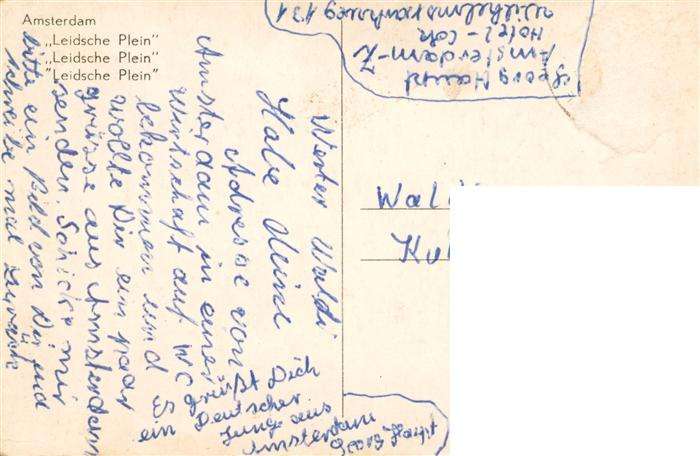 Amsterdam
„Leidsche Plein"
„Leidsche Plein"
"Leidsche Plein"
Werter Waldi
Habe Deine
Adresse von
Amsterdam in einer
Wirtschaft auf WC
bekommen und
wollte Dir ein paar
grüsse aus Amsterdam
senden. Schicke mir
bitte ein Bild von Dir und
schreibe mal zurück
Es grüßt Dich
ein Deutscher
Junge aus
Amsterdam
Georg Haupt
Amsterdam-Z
Hotel-Cok
131
Wal
Ku